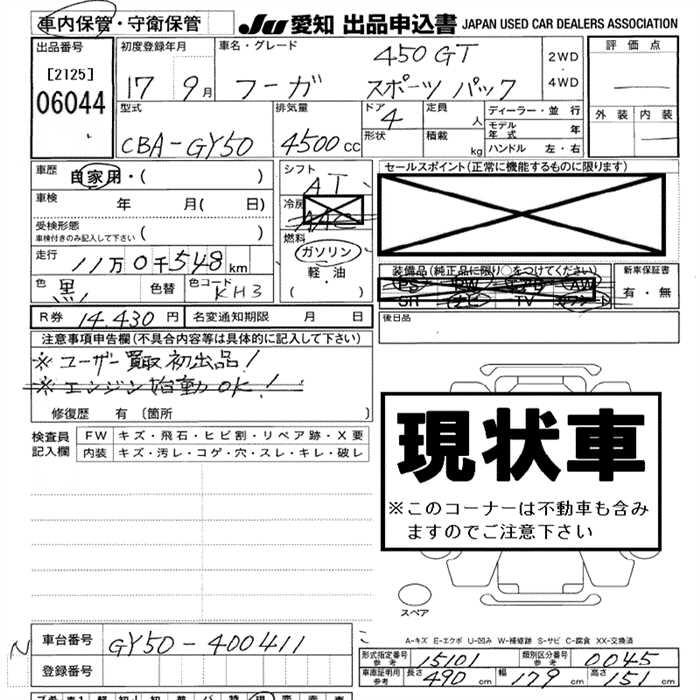 車内保管・守衛保管
JU 愛知 出品申込書 JAPAN USED CAR DEALERS ASSOCIATION
出品番号
[2125]
06044
初度登録年月
17 9月
車名・グレード
450GT
フーガ スポーツ パック
2WD
・
4WD
評価点
外装 内装
型式
CBA-GY50
排気量
4500cc
ドア 4
形状
定員 人
積載 kg
ディーラー・並行
モデル年式 年
ハンドル 左・右
車歴 自家用・( )
車検 年 月( 日)
受検形態
車検付きのみ記入して下さい ( )
走行 11万0千548km
色 黒
色替
色コード KH3
シフト AT
冷房 AAC
燃料
ガソリン
軽・油
( )
セールスポイント(正常に機能するものに限ります)
装備品(純正品に限り○をつけてください)
PS PW エアB AW
SR ナビ TV カワシート
新車保証書
有・無
後日品
R券 14,430円
名変通知期限 月 日
注意事項申告欄(不具合内容等は具体的に記入して下さい)
※ユーザー買取初出品!
※エンジン始動OK!
修復歴 有(箇所 )
検査員記入欄
FW キズ・飛石・ヒビ割・リペア跡・X要
内装 キズ・汚レ・コゲ・穴・スレ・キレ・破レ
現状車
※このコーナーは不動車も含み
ますのでご注意下さい
スペア
A-キズ E-エクボ U-凹み W-補修跡 S-サビ C-腐食 XX-交換済
N 車台番号 GY50-400411
登録番号
形式指定番号 参考 15101
類別区分番号 参考 0045
車庫証明用 参考 長さ 490cm 幅 179cm 高さ 151cm